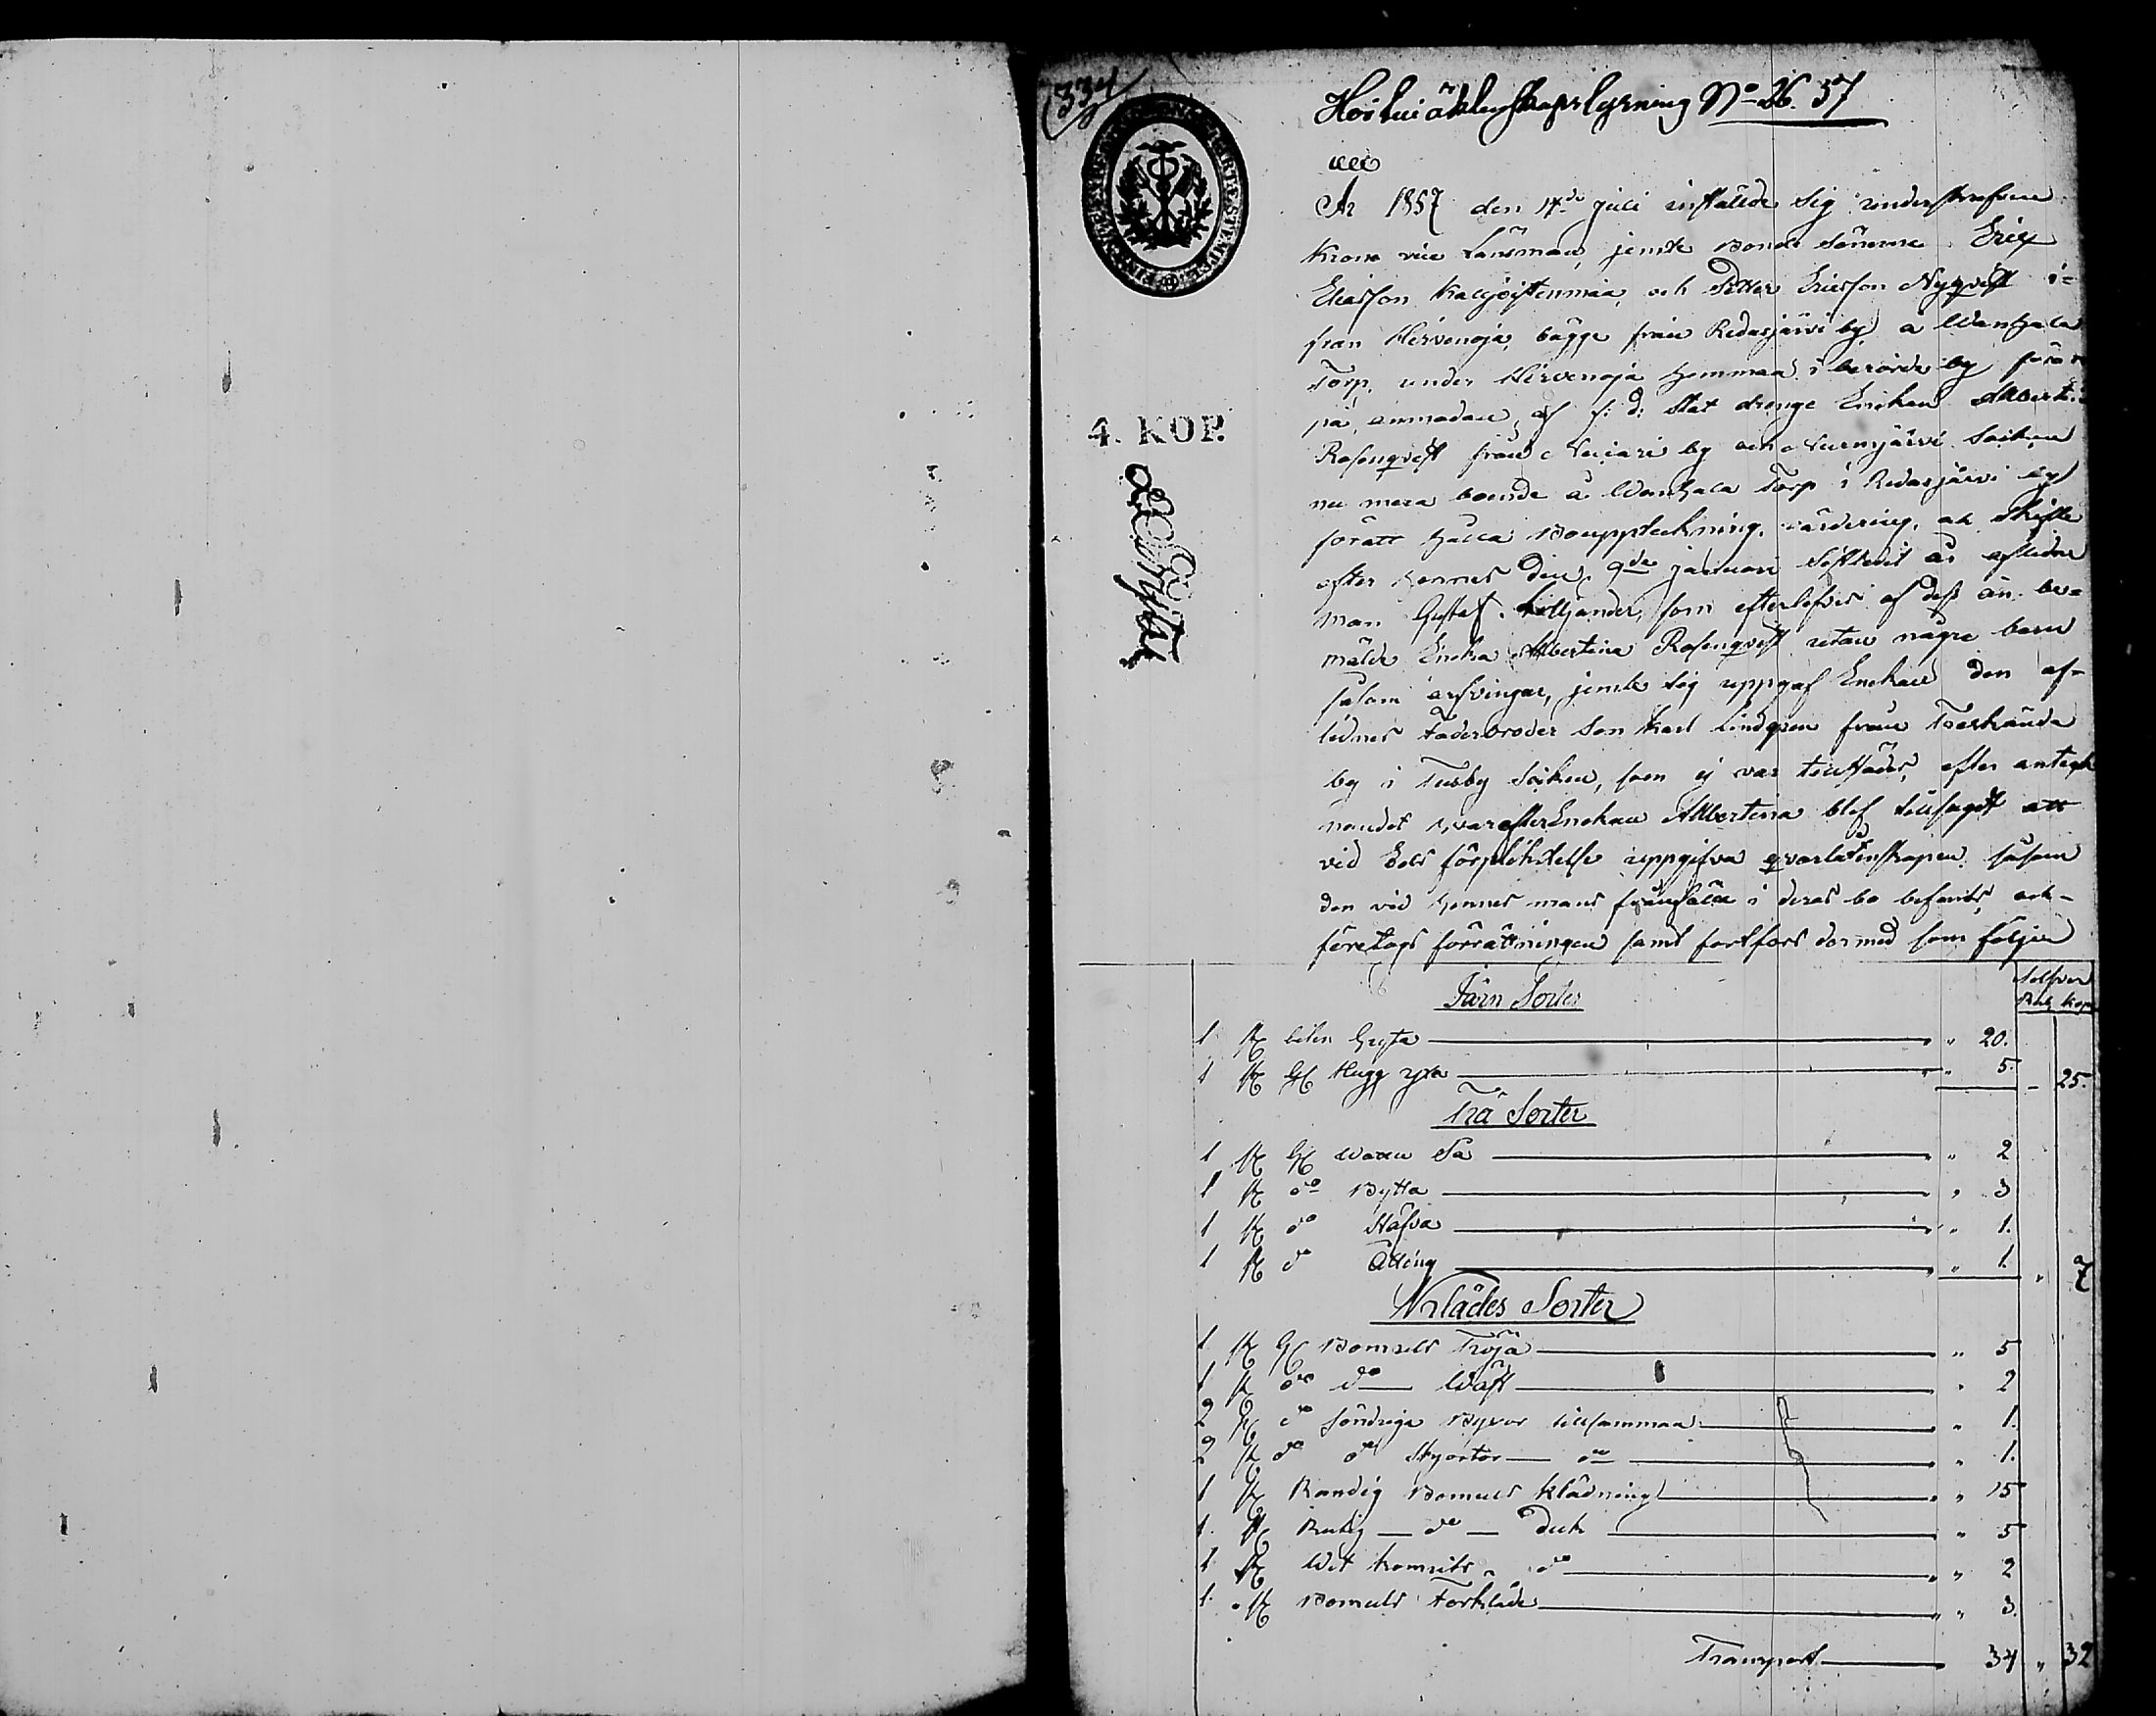 334
4. KOP.
Hörtui äktenskapslysning No 26. 57
År 1857 den 14de Juli instälde sig underskrefven
Krono vice Länsman, jemte Bonde Sönerne Erix
Ericsson Kaujoistenmäa, och Petter Ericsson Nyqvist i-
från Hirvenoja, bägge från Ridasjärvi by, å Wanhala
Torp, under Hirvenoja Hemman i berörde by
på anmodan, af f: d: Stat drängs Enckan Alberti:
Rosenqvist från by och Nurmjärvi Socken
nu mera boende å Wanhala Torp i Ridasjärvi by
föratt hålla Bouppteckning, värdering, och Skifte
efter Hennes den 9de Januari sistledit år aflidne
man Gustaf Liljander, som efterlefves af dess än be-
mälde Encka Albertina Rosenqvist utan några barn
såsom arfvingar, jemte sig uppgaf Enckan den af-
lidnes Faderbroder Son Karl Lindgren från Träskända
by i Tusby Socken, som ej var tillstädes, efter anteck
nandet hvarefter Enckan Albertina blef tillsagdt att
vid Eds förpliktelse uppgifva qvarlåtenskapen såsom
den vid Hennes mans frånfälle i deras bo befants, och-
företogs förrättningen samt fortfors dermed som följer
Silfver
Rub. Kop.
Järn Sorter
1 st liten Gryta " 20.
1 st Gl Hugg yxa " 5. - 25.
Trä Sorter
1 st Gl Watten Så " 2
1 st do Bytta " 3
1 st do Stäfva " 1.
1 st do Åtting " 1. " 7
Klädes Sorter
1 st Gl Bomulls Tröja " 5
1 st do do Wäst " 2
2 st do söndriga Byxor tillsamman " 1.
2 st do do Skjortor do " 1.
1 st Randig Bomulls Klädning " 15
1. st Rutig do Duk " 5
1 st Wit do " 2
1. st Bomulls Förkläde " 3.
Transport 34 " 32